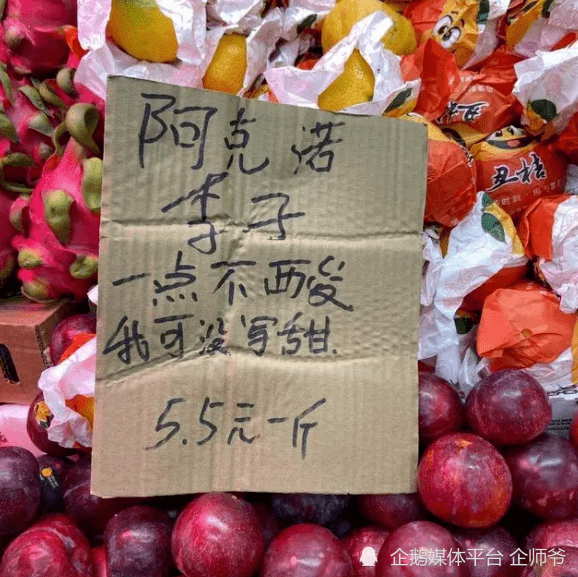 阿克诺
李子
一点不酸
我可没写甜.
5.5元一斤
丑桔
企鹅媒体平台 企师爷